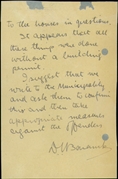 to the houses in question.
It appears that all
these things was done
without a building
permit.
I suggest that we
write to the Municipality
and ask them to confirm
this and then take
appropriate measures
against the offenders